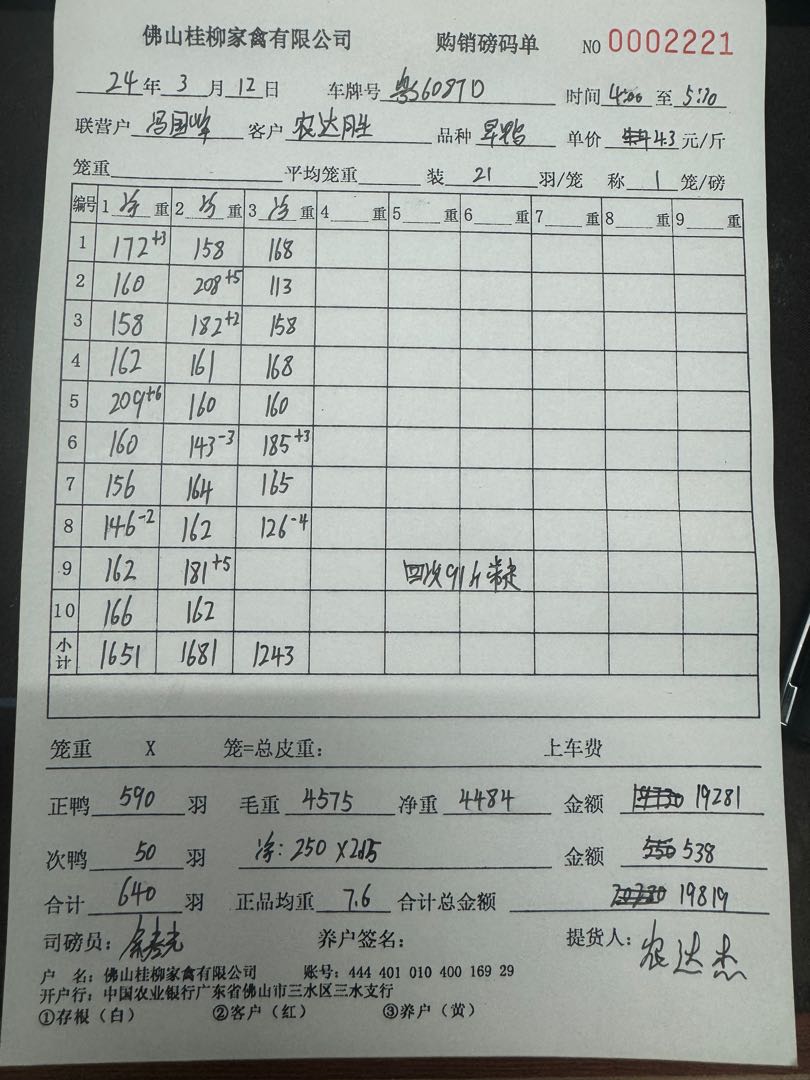 佛山桂柳家禽有限公司 购销磅码单 NO 0002221
24年 3 月 12 日 车牌号 粤S6087D 时间 4:00 至 5:30
联营户 冯国峰 客户 农达胜 品种 旱鸭 单价 4.3 元/斤
笼重 平均笼重 装 21 羽/笼 称 1 笼/磅
编号 1 净 重 2 净 重 3 净 重 4 重 5 重 6 重 7 重 8 重 9 重
1 172+3 158 168
2 160 208+5 113
3 158 182+2 158
4 162 161 168
5 209+6 160 160
6 160 143-3 185+3
7 156 164 165
8 146-2 162 126-4
9 162 181+5 四次91斤
10 166 162
小计 1651 1681 1243
笼重 X 笼=总皮重: 上车费
正鸭 590 羽 毛重 4575 净重 4484 金额 19281
次鸭 50 羽 净: 250 X 2.15 金额 550 538
合计 640 羽 正品均重 7.6 合计总金额 19819
司磅员: 养户签名: 提货人: 农达杰
户 名: 佛山桂柳家禽有限公司 账号: 444 401 010 400 169 29
开户行: 中国农业银行广东省佛山市三水区三水支行
①存根(白) ②客户(红) ③养户(黄)